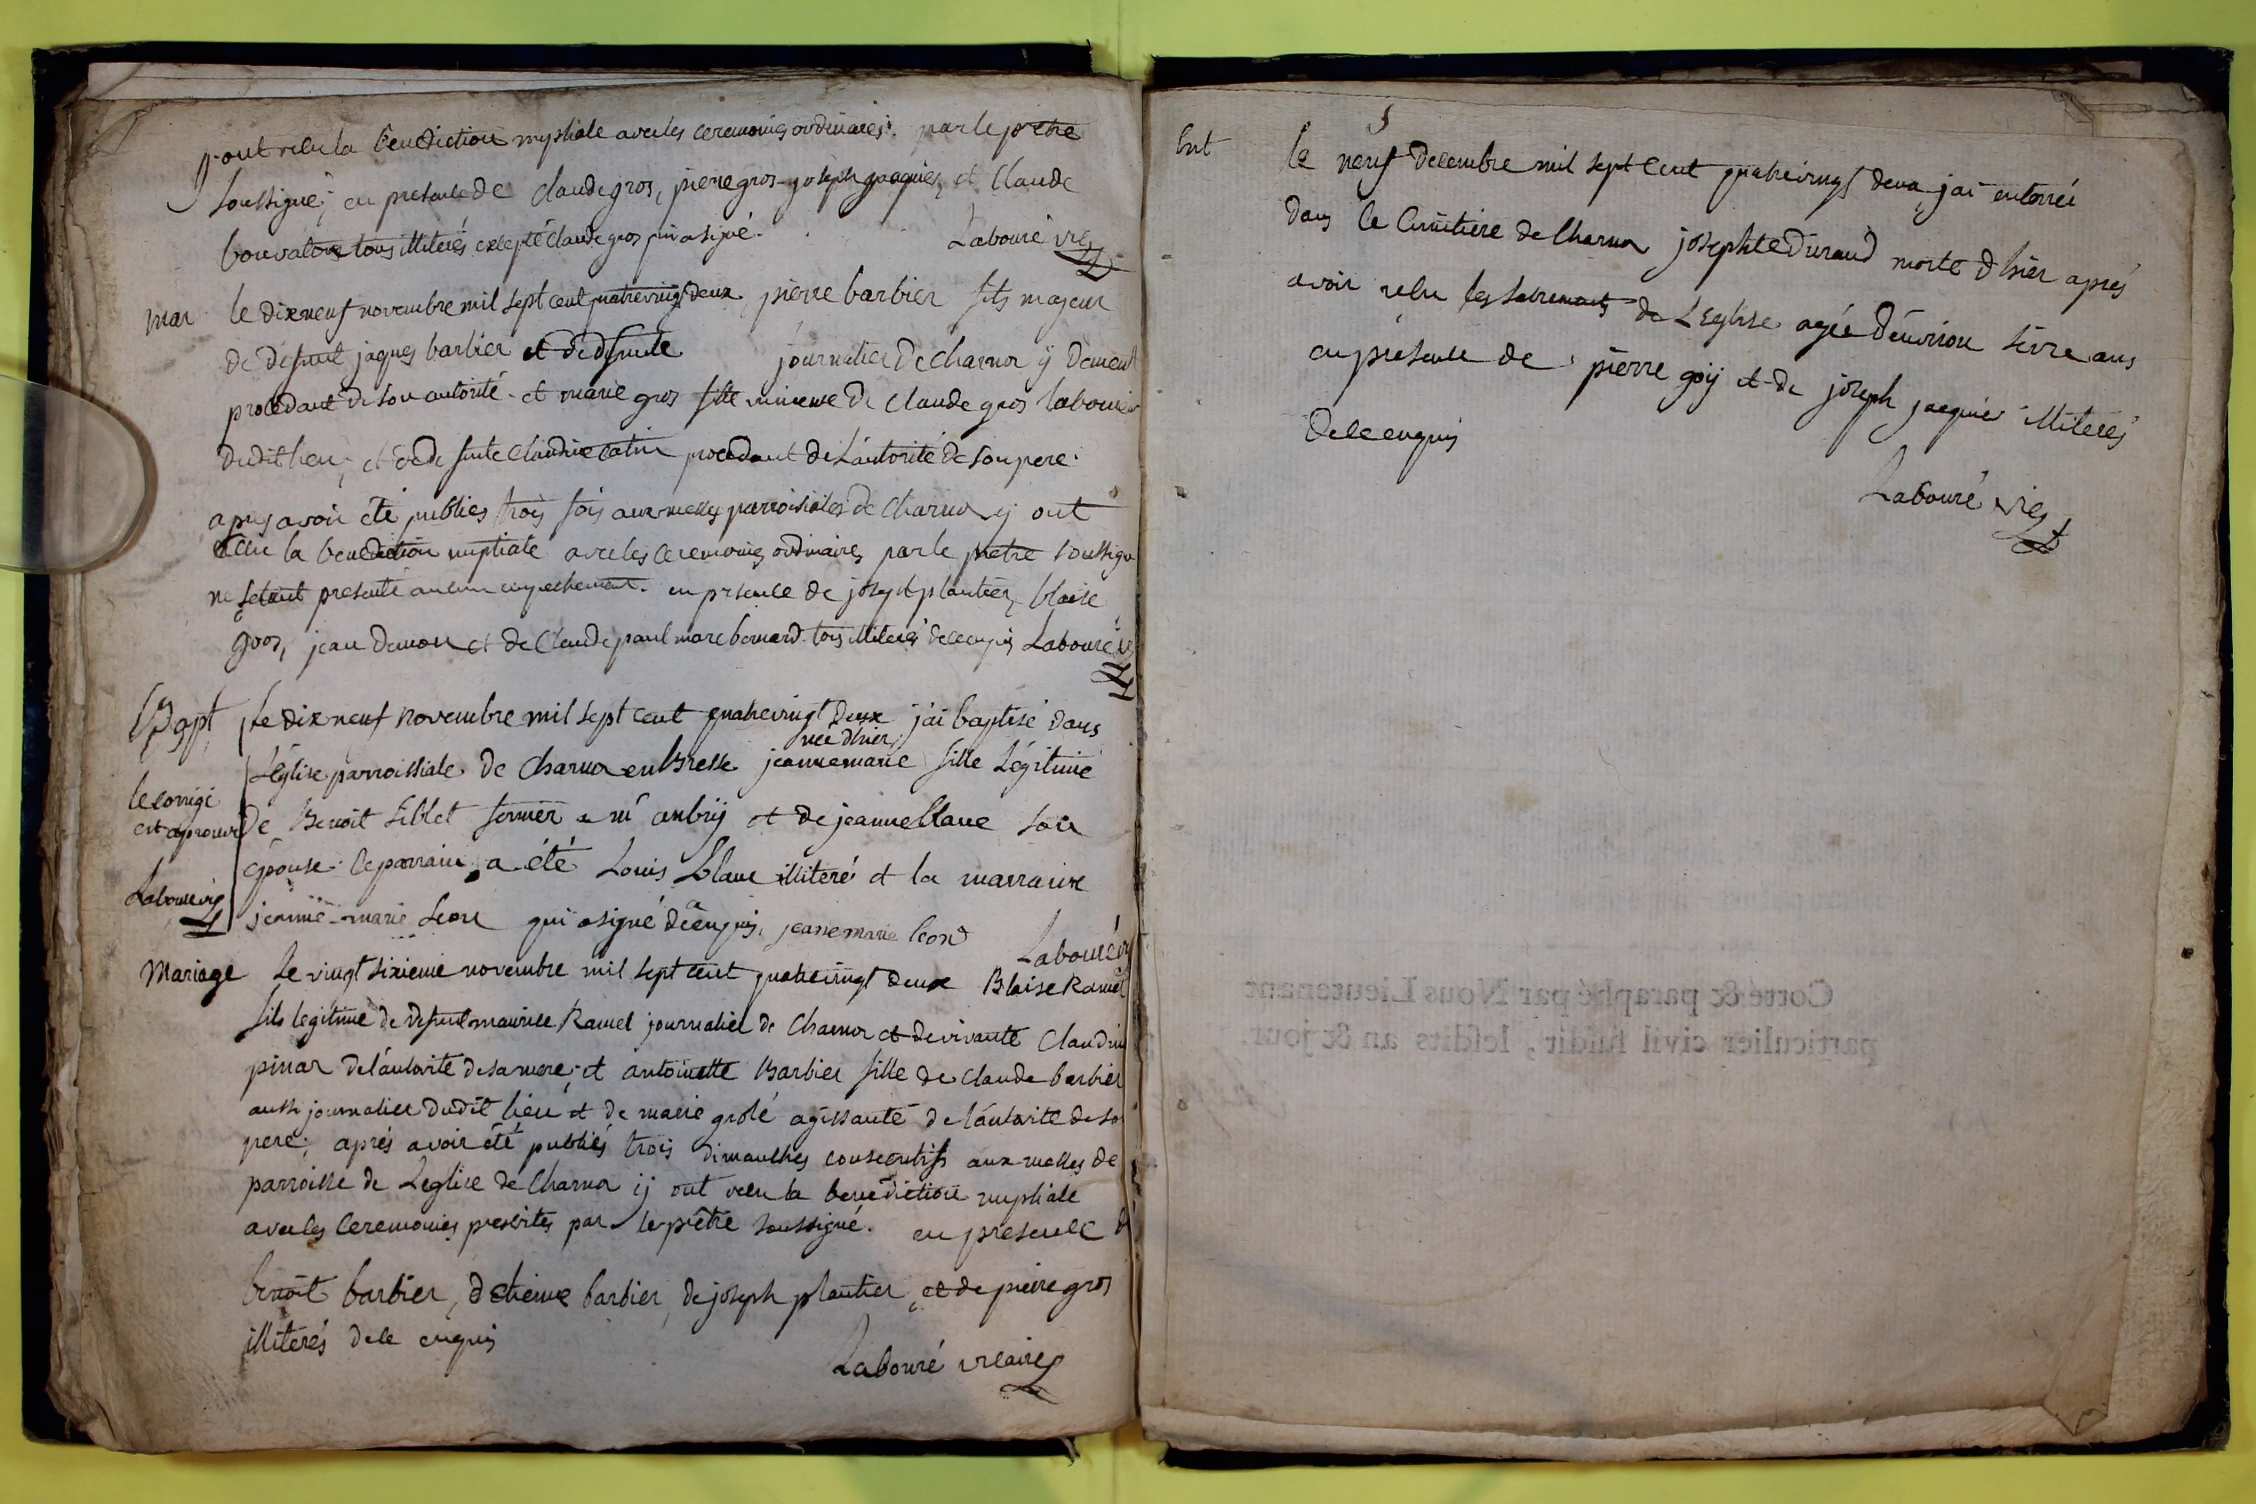 y ont recu la benediction nuptiale avec les ceremonies ordinaires. par le pretre
soussigné; en presence de claude gros, pierre gros, joseph jacquier, et Claude
bouvaton tous illiterés excepté claude gros qui a signé. Labouré vic
mar le dixneuf novembre mil sept cent quatrevingt deux pierre barbier fils majeur
de defunt jaques barbier et de defunte journalier de charnoz ÿ demeut
procedant de son autorité. et marie gros fille mineure de claude gros laboureur
dudit lieu; et de defunte claudine catin procedant de L'autorité de son pere.
apres avoir été publiés trois fois aux messes parroissiales de charnoz y ont
recu la benediction nuptiale avec les ceremonies ordinaires par le pretre soussigné
ne setant presenté aucun empechement. en presence de joseph plantier, blaise
gros, jean et de Claude paul marc bernard tous illiteres de ce enquis Labouré vic
Bapt Le dix neuf novembre mil sept cent quatrevingt deux j'ai baptisé dans
née d'hier
L'église parroissiale de charnoz en bresse jeanne marie fille Légitime
le corrigé
est aprouvé
de Benoit siblet fermier a mr anbrÿ et de jeanne blanc son
épouse. le parrain a été Louis blanc illiteré et la marraine
Labouré vic
jeanne-marie Leon qui a signé de ce enquis. jeane marie leond Labouré vic
Mariage Le vingt sixieme novembre mil sept cent quatrevingt deux Blaise Ramel
fils legitime de defunt maurice Ramel journalier de Charnoz et de vivante Claudine
pinar de l'autorité de sa mere; et antoinette Barbier fille de claude barbier
aussi journalier dudit lieu et de marie grolé agissante de l'autorité de son
pere; aprés avoir été publiés trois dimanches consecutifs aux messes de
parroisse de L'eglise de Charnoz ij ont recu la benediction nuptiale
avec les ceremonies prescrites par le prêtre soussigné. en presence de
benoit barbier, d'etienne barbier, de joseph plantier, et de pierre gros
illiterés de ce enquis
Labouré vicaire
Ent le neuf decembre mil sept cent quatrevingt deux, jai enterré
dans le cimitiere de Charnoz josephte Durand morte d'hier aprés
avoir recu les sacrements de L'Eglise agée d'environ seize ans
en presence de pierre goÿ et de joseph jacquier illiterés
de ce enquis
Labouré vic
Cotté & paraphé par Nous Lieutenant
particulier civil susdit, lesdits an & jour.